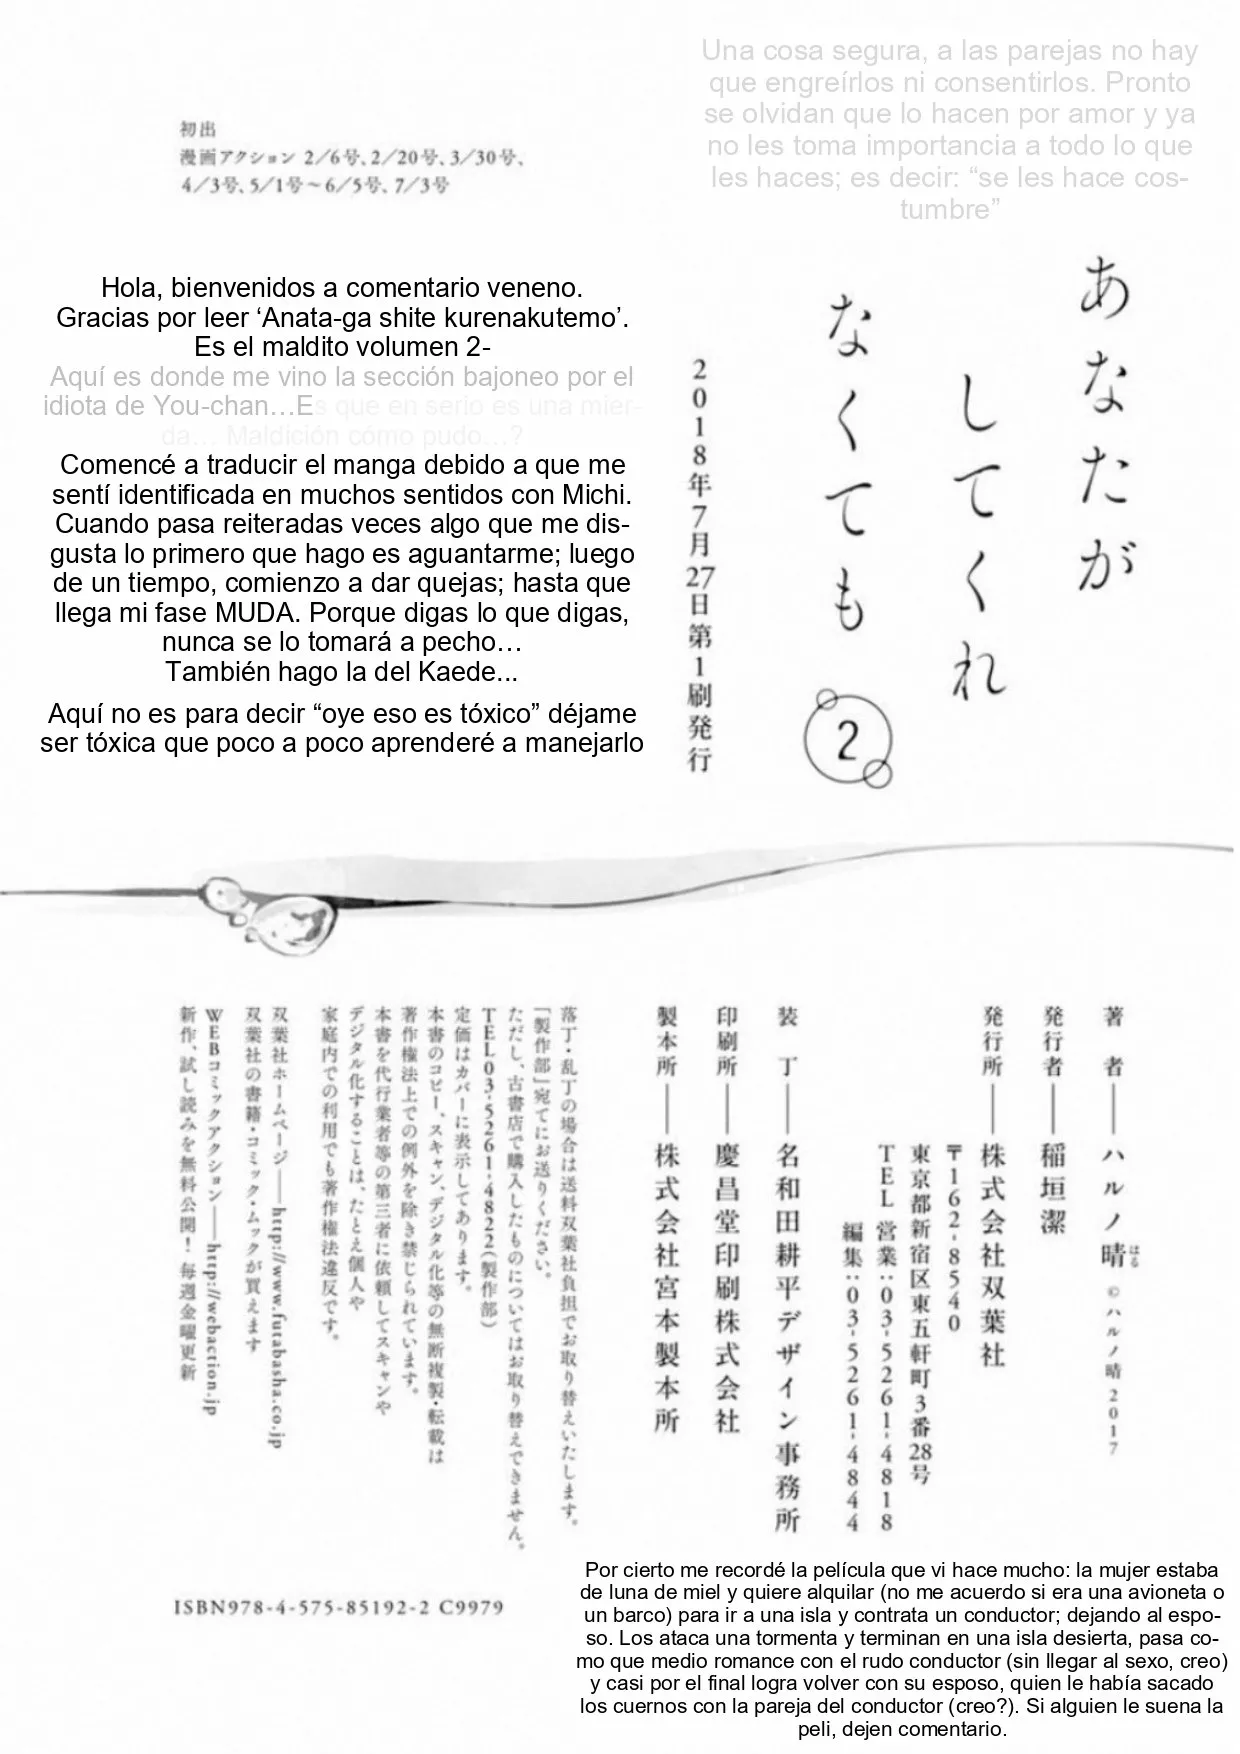 Una cosa segura, a las parejas no hay
que engreírlos ni consentirlos. Pronto
se olvidan que lo hacen por amor y ya
no les toma importancia a todo lo que
les haces; es decir: “se les hace cos-
tumbre”
初出
漫画アクション 2/6号、2/20号、3/30号、
4/3号、5/1号～6/5号、7/3号
Hola, bienvenidos a comentario veneno.
Gracias por leer ‘Anata-ga shite kurenakutemo’.
Es el maldito volumen 2-
Aquí es donde me vino la sección bajoneo por el
idiota de You-chan…Es que en serio es una mier-
da… Maldición cómo pudo…?
Comencé a traducir el manga debido a que me
sentí identificada en muchos sentidos con Michi.
Cuando pasa reiteradas veces algo que me dis-
gusta lo primero que hago es aguantarme; luego
de un tiempo, comienzo a dar quejas; hasta que
llega mi fase MUDA. Porque digas lo que digas,
nunca se lo tomará a pecho…
También hago la del Kaede...
Aquí no es para decir “oye eso es tóxico” déjame
ser tóxica que poco a poco aprenderé a manejarlo
あなたが
してくれ
なくても
2
2018年7月27日第1刷発行
著者――ハルノ晴 ©ハルノ晴 2017
はる
発行者――稲垣潔
発行所――株式会社双葉社
〒162-8540
東京都新宿区東五軒町3番28号
TEL 営業:03-5261-4818
編集:03-5261-4844
装丁――名和田耕平デザイン事務所
印刷所――慶昌堂印刷株式会社
製本所――株式会社宮本製本所
落丁・乱丁の場合は送料双葉社負担でお取り替えいたします。
「製作部」宛てにお送りください。
ただし、古書店で購入したものについてはお取り替えできません。
TEL03-5261-4822(製作部)
定価はカバーに表示してあります。
本書のコピー、スキャン、デジタル化等の無断複製・転載は
著作権法上での例外を除き禁じられています。
本書を代行業者等の第三者に依頼してスキャンや
デジタル化することは、たとえ個人や
家庭内での利用でも著作権法違反です。
双葉社ホームページ――http://www.futabasha.co.jp
双葉社の書籍・コミック・ムックが買えます
WEBコミックアクション――http://webaction.jp
新作、試し読みを無料公開！ 毎週金曜更新
ISBN978-4-575-85192-2 C9979
Por cierto me recordé la película que vi hace mucho: la mujer estaba
de luna de miel y quiere alquilar (no me acuerdo si era una avioneta o
un barco) para ir a una isla y contrata un conductor; dejando al espo-
so. Los ataca una tormenta y terminan en una isla desierta, pasa co-
mo que medio romance con el rudo conductor (sin llegar al sexo, creo)
y casi por el final logra volver con su esposo, quien le había sacado
los cuernos con la pareja del conductor (creo?). Si alguien le suena la
peli, dejen comentario.